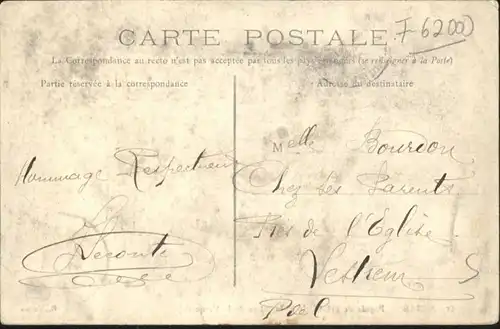 F 6200
CARTE POSTALE
La Correspondance au recto n'est pas acceptée par tous les pays étrangers (se renseigner à la Poste)
Partie réservée à la correspondance
Adresse du destinataire
Melle Bourdon
Hommage Respectueux
Chez Ses Parents
Près de l'Eglise
Leconte